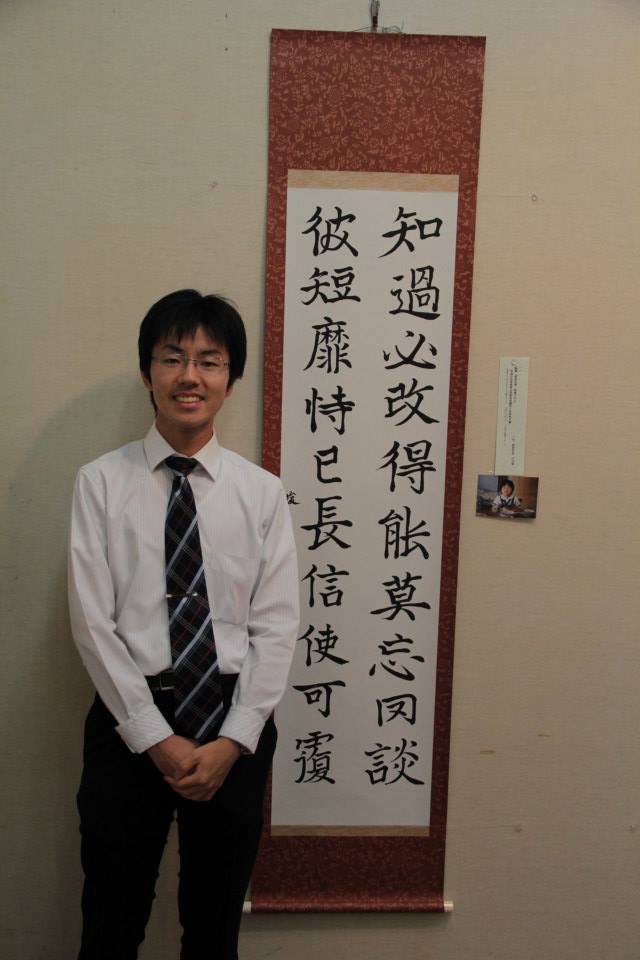 知過必改得能莫忘罔談
彼短靡恃己長信使可覆